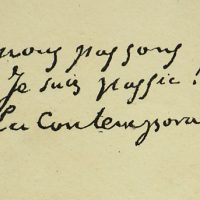 nous passons
Je suis passée !
La Contempora